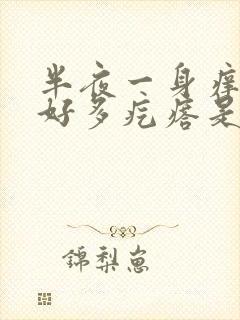 半夜一身痒
好多疙瘩是
錦梨崽